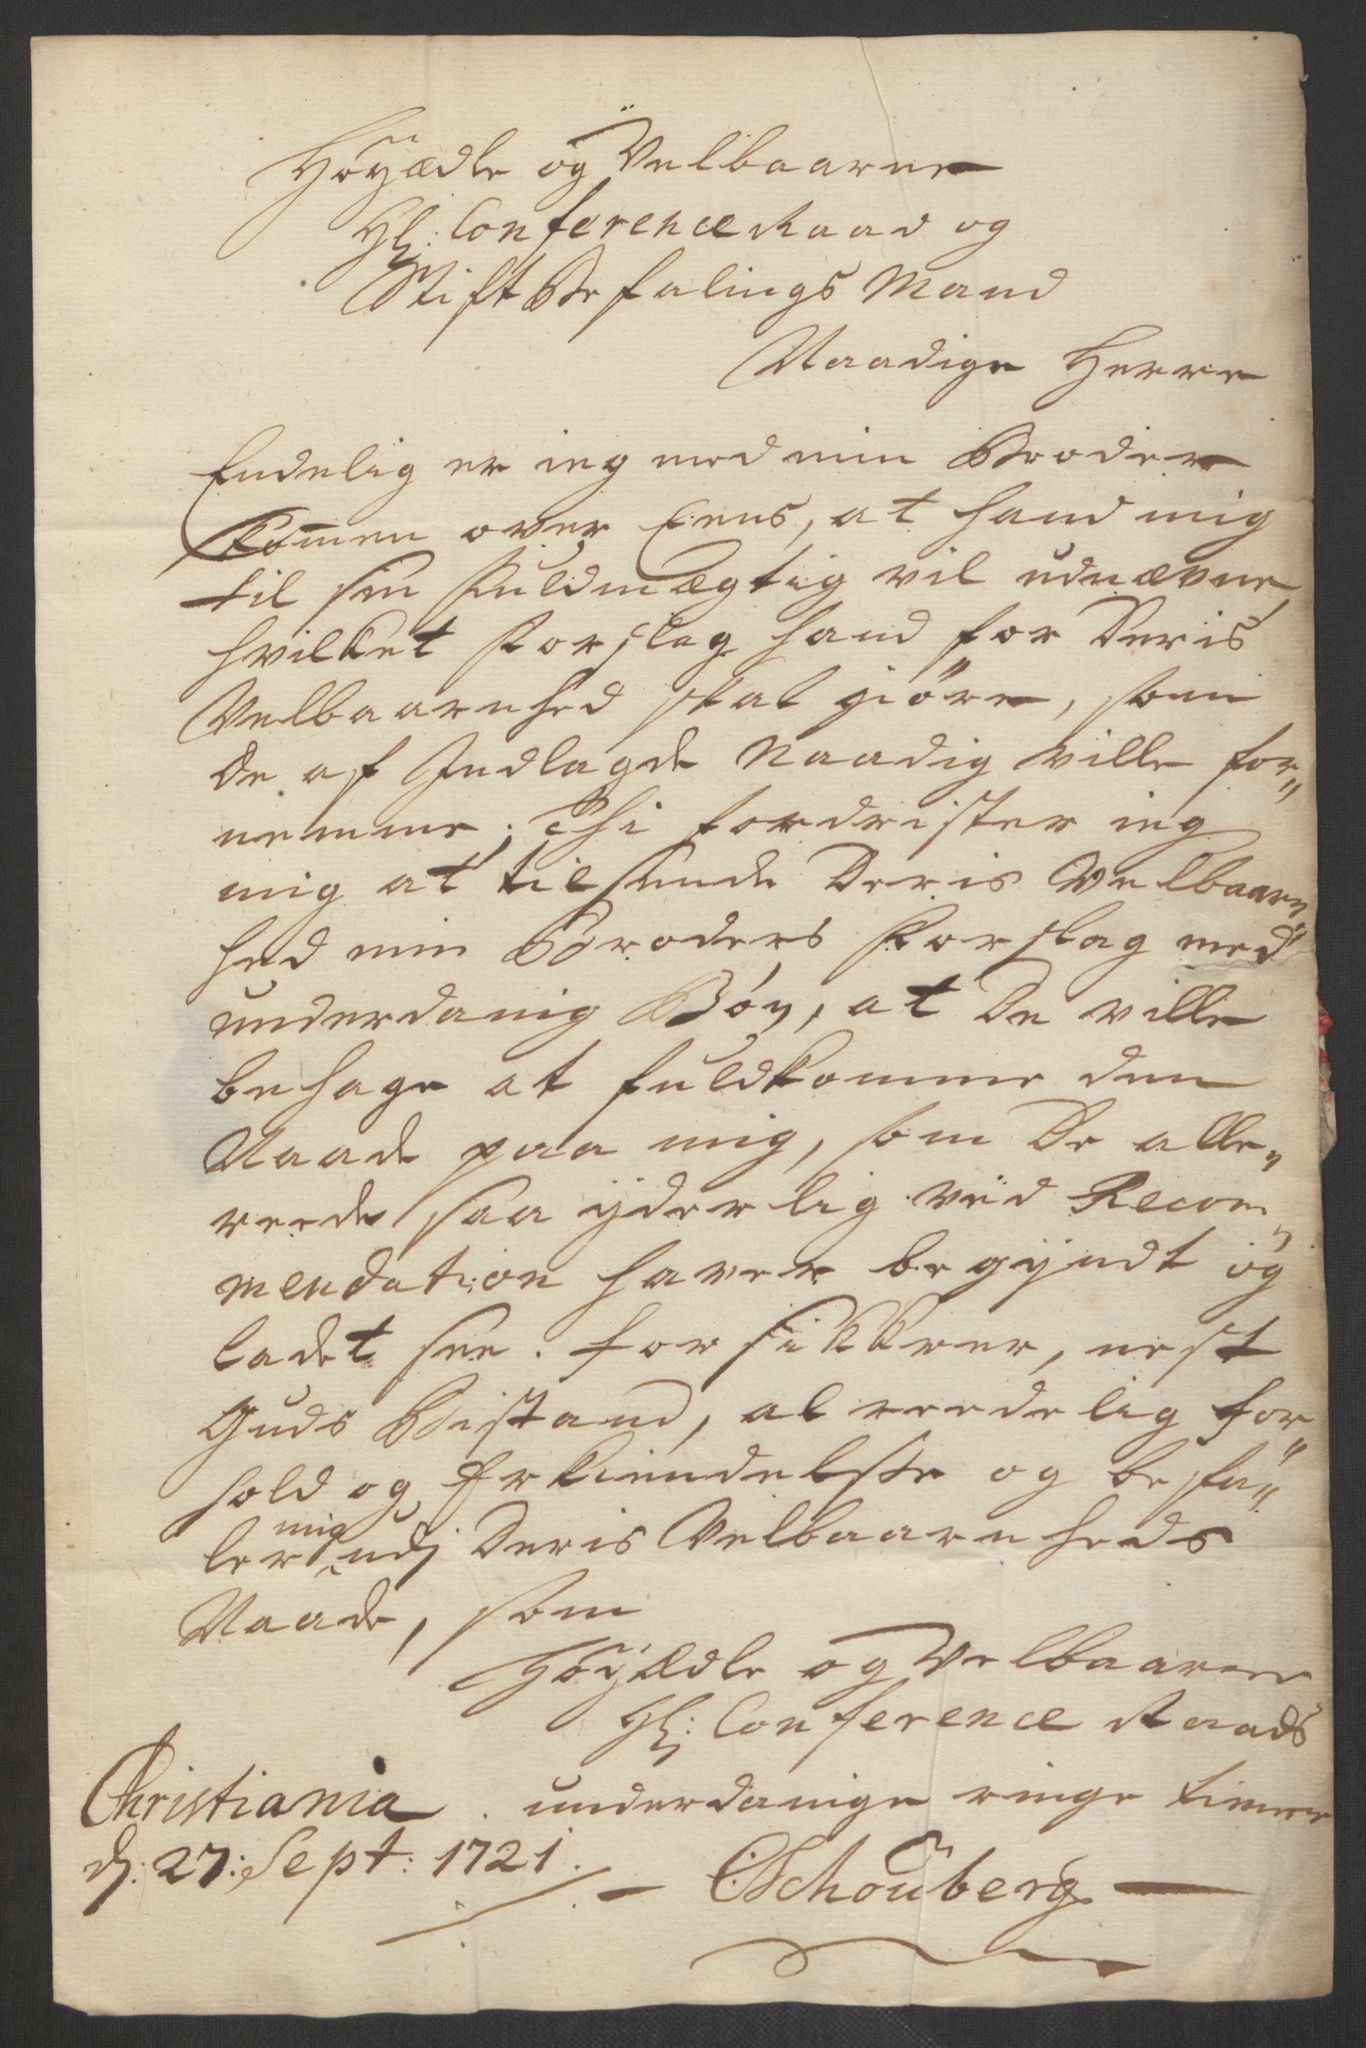 Höyædle og Velbaarne
Hr: Conference Raad og
Stift Befalings Mand
Naadige Herre
Endelig er ieg med min Broder
kom̄en over Eens, at hand mig
til sin Fuldmægtig vil udnævne,
hvilket Forslag hand for Deris
Velbaarnhed skal giöre, som
De af Indlagde Naadig ville for„
nemme; Thi fordrister ieg
mig at tilsende Deris Velbaarn„
hed min Broders Forslag med
underdanig Bön, at De ville
behage at fuldkomme den
Naade paa mig, som De alle„
reede saa ÿderlig ved Recom„
mendation haver begÿndt og
ladet see. forsikkrer, nest
Guds Bistand, al reedelig for„
hold og Erkiendelsse og befa„
ler mig udj Deris Velbaarnheds
Naade, som
Höyædle og Velbaarne
Hr: Conference Raads
Christiania underdanige ringe tienere
d: 27: Sept: 1721. CSchouberg